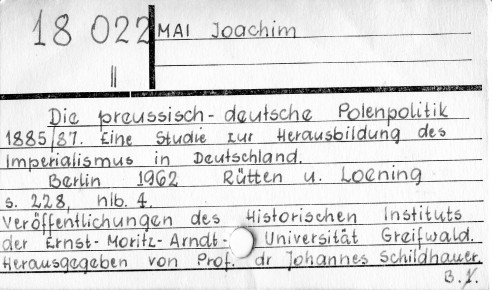 18 022
II
MAI Joachim
Die preussisch-deutsche Polenpolitik
1885/87. Eine Studie zur Herausbildung des
Imperialismus in Deutschland.
Berlin 1962 Rütten u. Loening
s. 228, nlb. 4.
Veröffentlichungen des Historischen Instituts
der Ernst-Moritz-Arndt-Universität Greifwald.
Herausgegeben von Prof. dr Johannes Schildhauer.